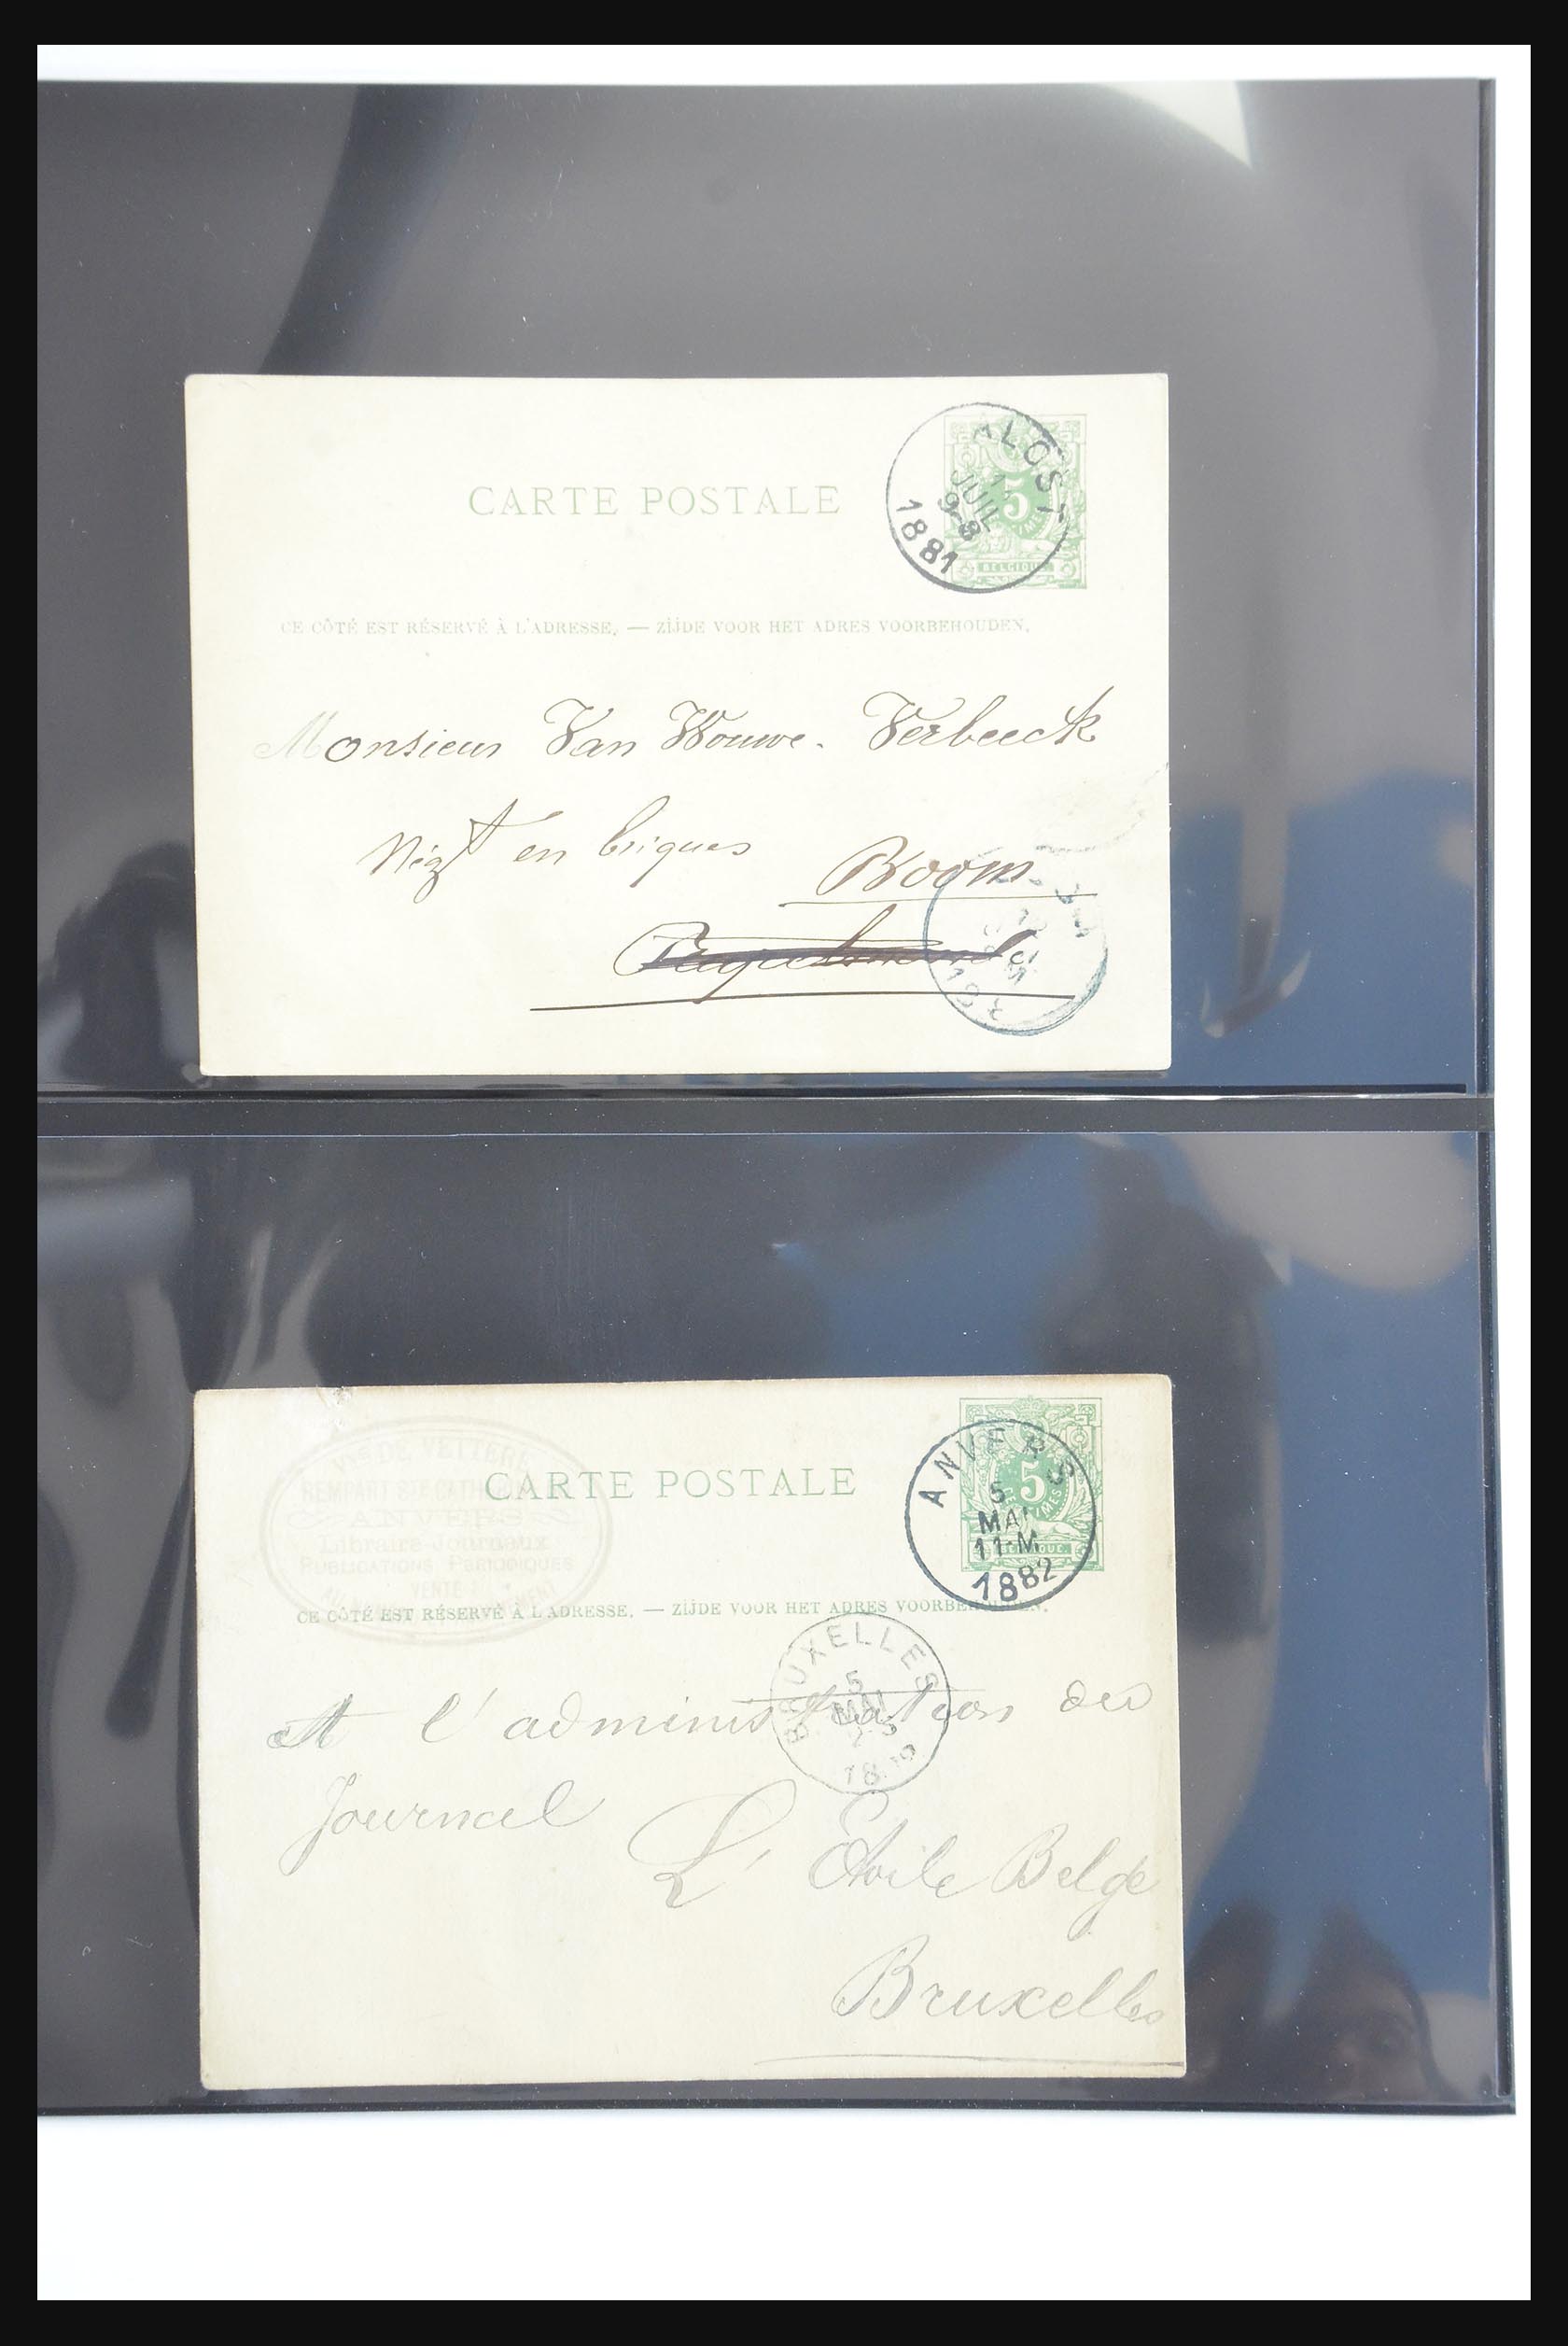 CARTE POSTALE
ALOST
JUIL
9-8
1881
5
BELGIQUE
CE CÔTÉ EST RÉSERVÉ À L'ADRESSE. — ZIJDE VOOR HET ADRES VOORBEHOUDEN.
Monsieur Van Wouwe-Verbeeck
Negt en briques
Boom
DE VETTERE
REMPART STE CATHERINE
ANVERS
Libraire-Journaux
PUBLICATIONS PÉRIODIQUES
VENTE
CARTE POSTALE
ANVERS
5
MAI
11-M
1882
5
CE CÔTÉ EST RÉSERVÉ À L'ADRESSE. — ZIJDE VOOR HET ADRES VOORBEHOUDEN.
BRUXELLES
5
MAI
A l'administration du
Journal
L'Etoile Belge
Bruxelles